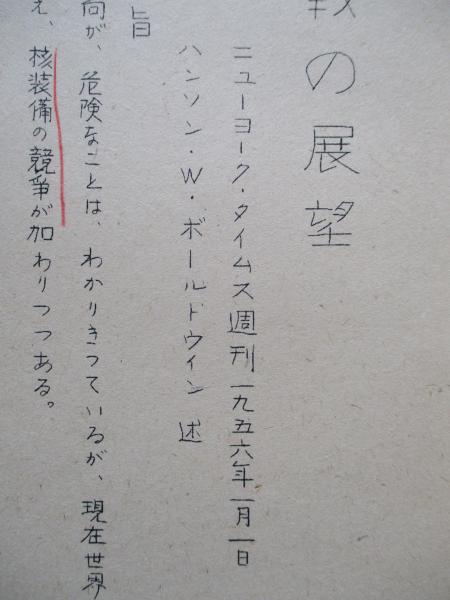 の展望
ニューヨーク・タイムス週刊一九五六年一月一日
ハンソン・W・ボールドウイン 述
旨
向が、危険なことは、わかりきつているが、現在世界
え、核装備の競争が加わりつつある。